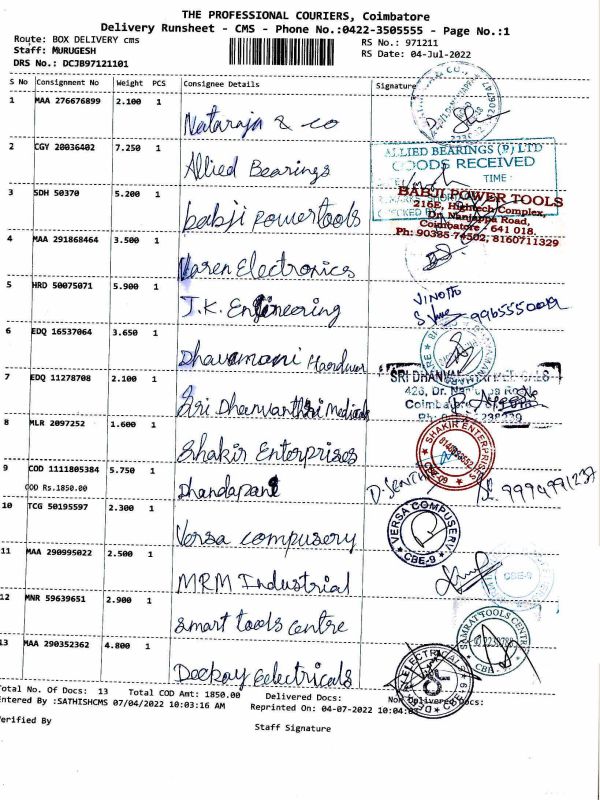 THE PROFESSIONAL COURIERS, Coimbatore
Delivery Runsheet - CMS - Phone No.:0422-3505555 - Page No.:1
Route: BOX DELIVERY cms
RS No.: 971211
Staff: MURUGESH
RS Date: 04-Jul-2022
DRS No.: DCJB97121101
S No Consignment No Weight PCS Consignee Details Signature
1 MAA 276676899 2.100 1 Nataraja & co
2 CGY 20036402 7.250 1 Allied Bearings
ALLIED BEARINGS (P) LTD
GOODS RECEIVED
TIME
3 SDH 50370 5.200 1 babji powertools
BABJI POWER TOOLS
216E, Hightech Complex,
Dr. Nanjappa Road,
Coimbatore - 641 018.
Ph: 90385 74502, 8160711329
4 MAA 291868464 3.500 1 Naren Electronics
5 HRD 50075071 5.900 1 J.K. Engineering
VINOTH
6 EDQ 16537064 3.650 1 Dhavamani Hardwar
7 EDQ 11278708 2.100 1 Sri Dhanvanthri Medicals
8 MLR 2097252 1.600 1 Shakir Enterprises
SHAKIR ENTERPRISES
9 COD 1111805384 5.750 1 Dhandapani
COD Rs.1850.00
9994991237
10 TCG 50195597 2.300 1 Versa compusery
VERSA COMPUSERV
CBE-9
11 MAA 290995022 2.500 1 MRM Industrial
CBE-9
12 MNR 59639651 2.900 1 Smart tools centre
SAMRAT TOOLS CENTR
13 MAA 290352362 4.800 1 Deekay Eelectricals
Total No. Of Docs: 13 Total COD Amt: 1850.00 Delivered Docs: Non Delivered Docs:
Entered By :SATHISHCMS 07/04/2022 10:03:16 AM Reprinted On: 04-07-2022 10:04:03
Verified By
Staff Signature